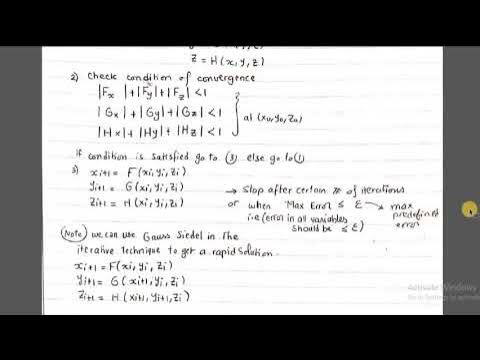 z = H(x,y,z)
2) Check condition of convergence
|Fx| + |Fy| + |Fz| < 1
|Gx| + |Gy| + |Gz| < 1 } at (x0,y0,z0)
|Hx| + |Hy| + |Hz| < 1
if condition is satisfied go to (3) else go to (1)
3) xi+1 = F(xi,yi,zi)
yi+1 = G(xi,yi,zi) → Stop after certain # of iterations
zi+1 = H(xi,yi,zi) or when Max Error ≤ ε → max predefined error
i.e (error in all variables
should be ≤ ε)
(Note) we can use Gauss Siedel in the
iterative technique to get a rapid solution.
xi+1 = F(xi,yi,zi)
yi+1 = G(xi+1,yi,zi)
zi+1 = H(xi+1,yi+1,zi)
Activate Windows